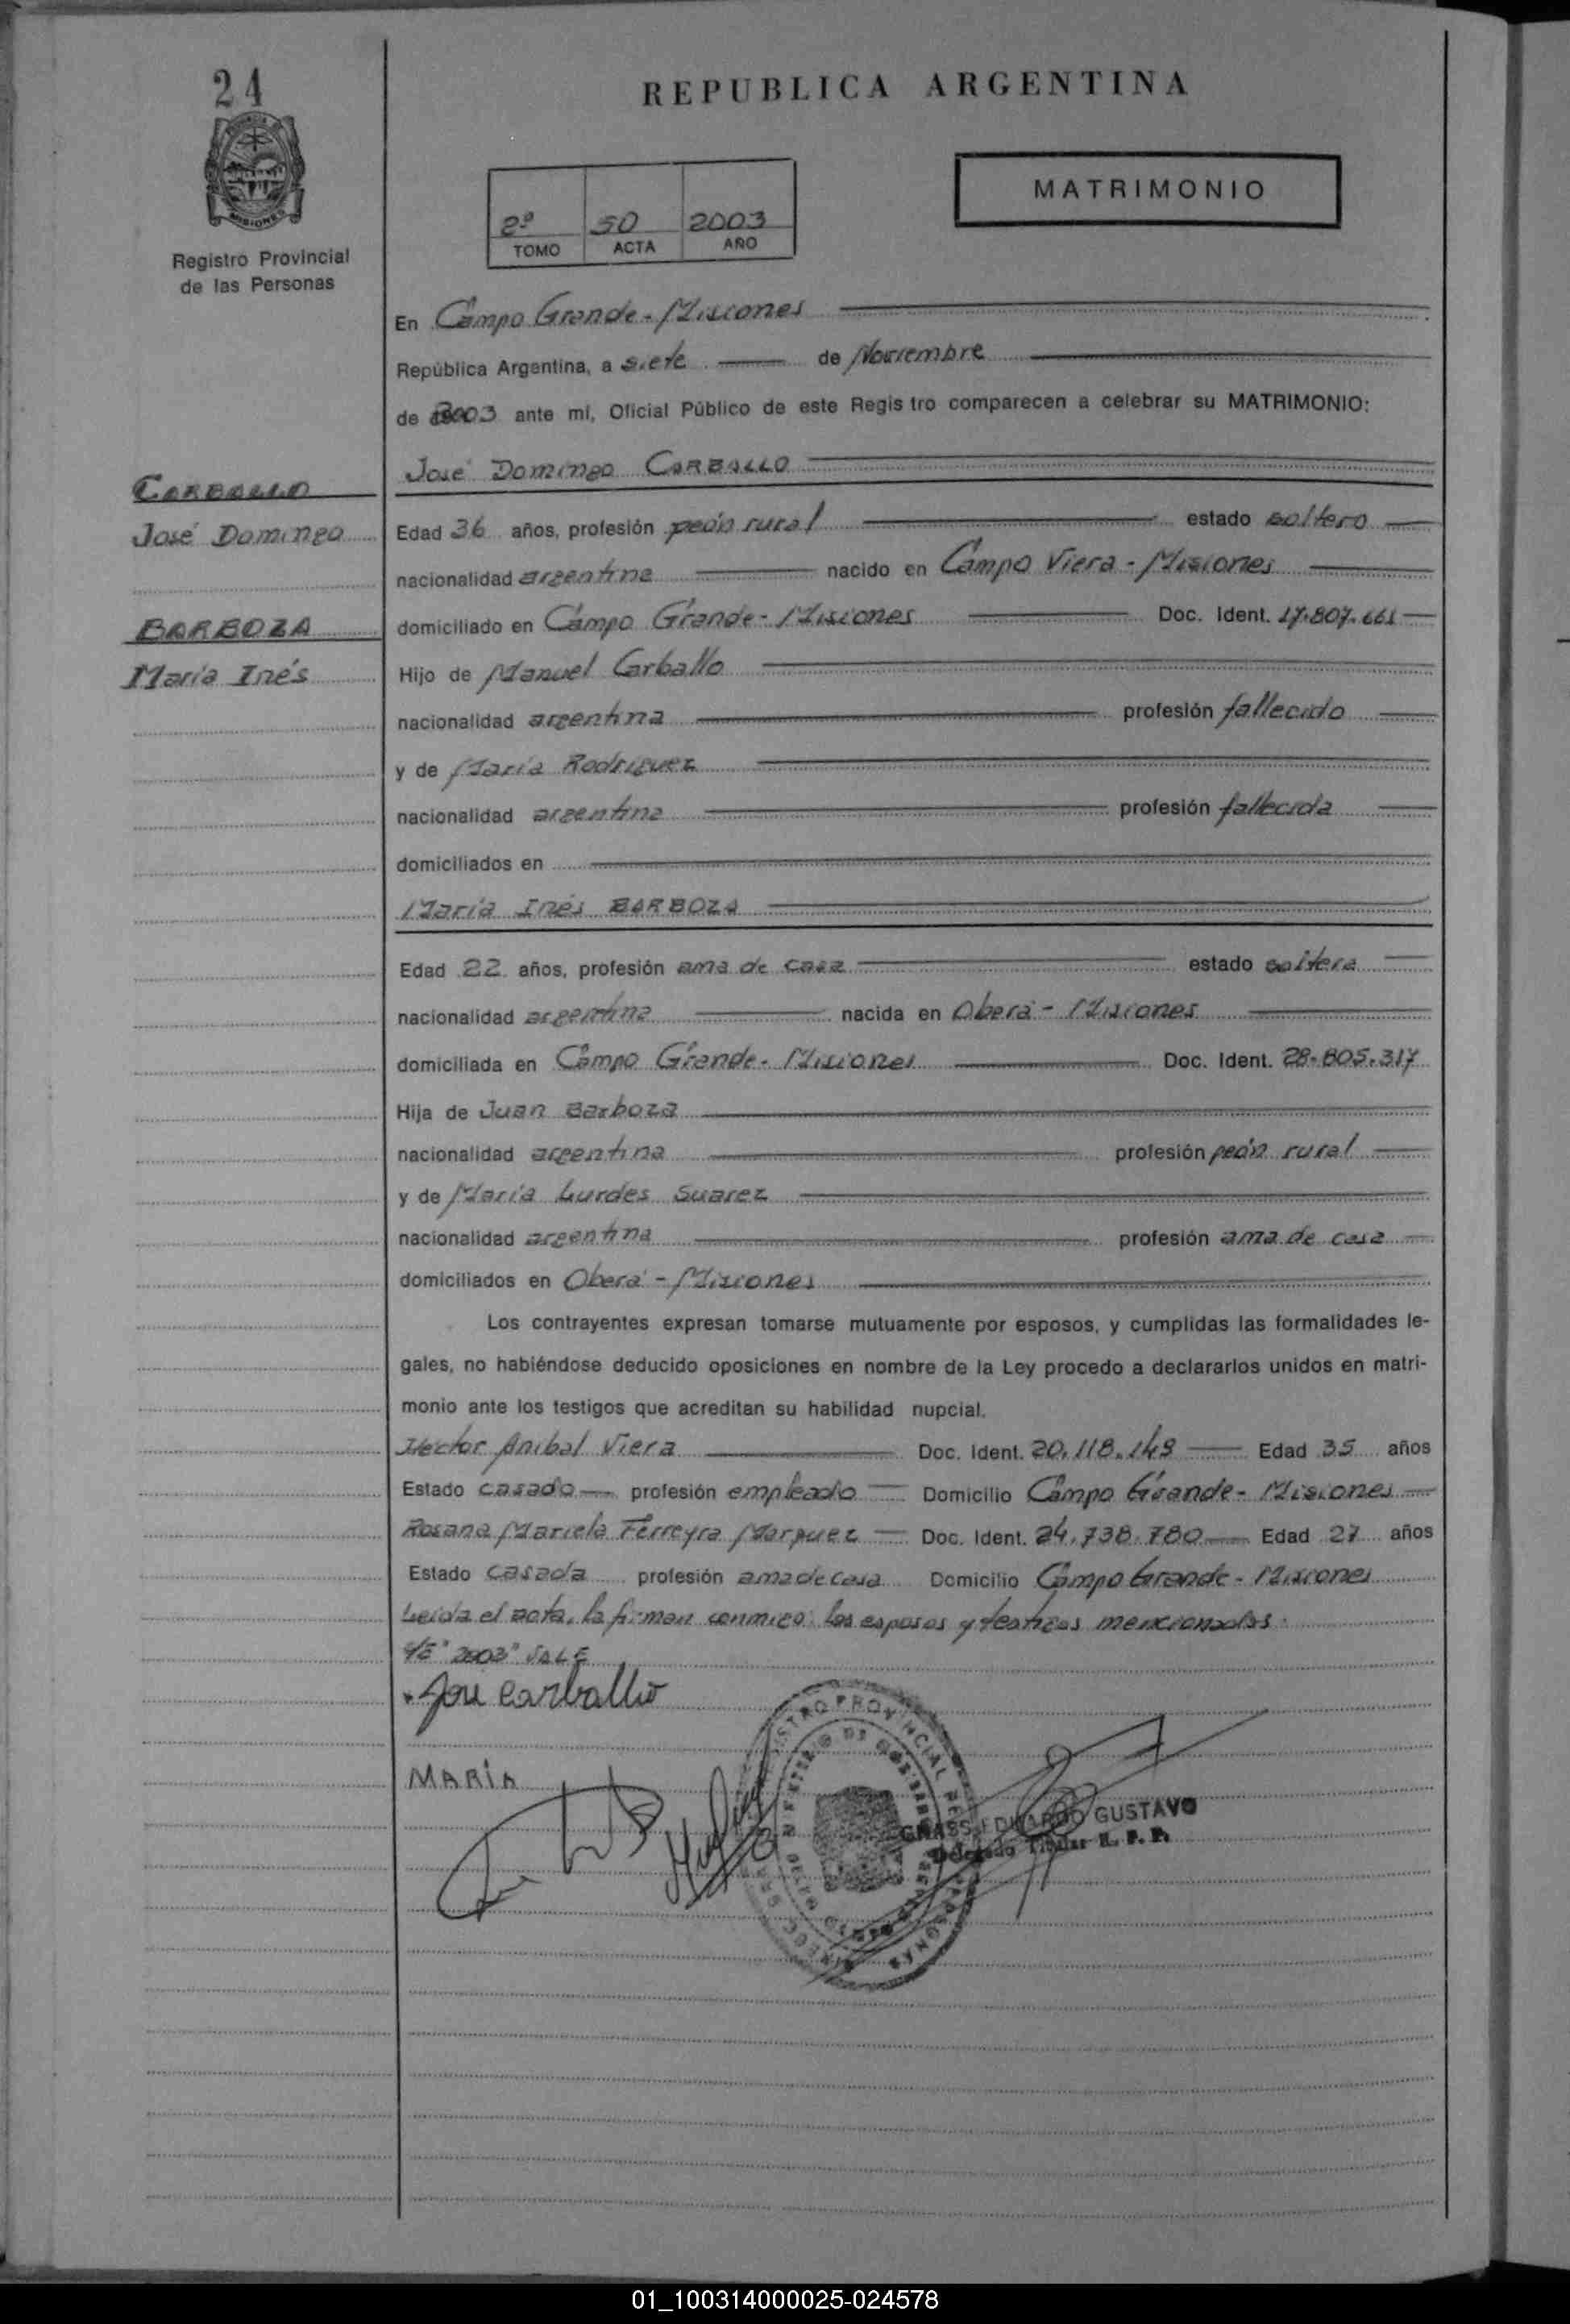 24
REPUBLICA ARGENTINA
MATRIMONIO
2º 50 2003
TOMO ACTA AÑO
MISIONES
Registro Provincial
de las Personas
En Campo Grande - Misiones
República Argentina, a siete de Noviembre
de 2003 ante mí, Oficial Público de este Registro comparecen a celebrar su MATRIMONIO:
José Domingo CARBALLO
CARBALLO
José Domingo
Edad 36 años, profesión peón rural estado soltero
nacionalidad argentina nacido en Campo Viera - Misiones
BARBOZA
domiciliado en Campo Grande - Misiones Doc. Ident. 17.807.661
María Inés
Hijo de Manuel Carballo
nacionalidad argentina profesión fallecido
y de María Rodriguez
nacionalidad argentina profesión fallecida
domiciliados en
María Inés BARBOZA
Edad 22 años, profesión ama de casa estado soltera
nacionalidad argentina nacida en Oberá - Misiones
domiciliada en Campo Grande - Misiones Doc. Ident. 28.805.317
Hija de Juan Barboza
nacionalidad argentina profesión peón rural
y de María Lurdes Suarez
nacionalidad argentina profesión ama de casa
domiciliados en Oberá - Misiones
Los contrayentes expresan tomarse mutuamente por esposos, y cumplidas las formalidades le-
gales, no habiéndose deducido oposiciones en nombre de la Ley procedo a declararlos unidos en matri-
monio ante los testigos que acreditan su habilidad nupcial.
Hector Anibal Viera Doc. Ident. 20.118.149 Edad 35 años
Estado casado profesión empleado Domicilio Campo Grande - Misiones
Rosana Mariela Ferreyra Marquez Doc. Ident. 24.738.780 Edad 27 años
Estado casada profesión ama de casa Domicilio Campo Grande - Misiones
Leída el acta, la firman conmigo los esposos y testigos mencionados.
S/E "2003" VALE
José Carballo
MARÍA
GRASS EDUARDO GUSTAVO
Delegado Titular R. P. P.
01_100314000025-024578